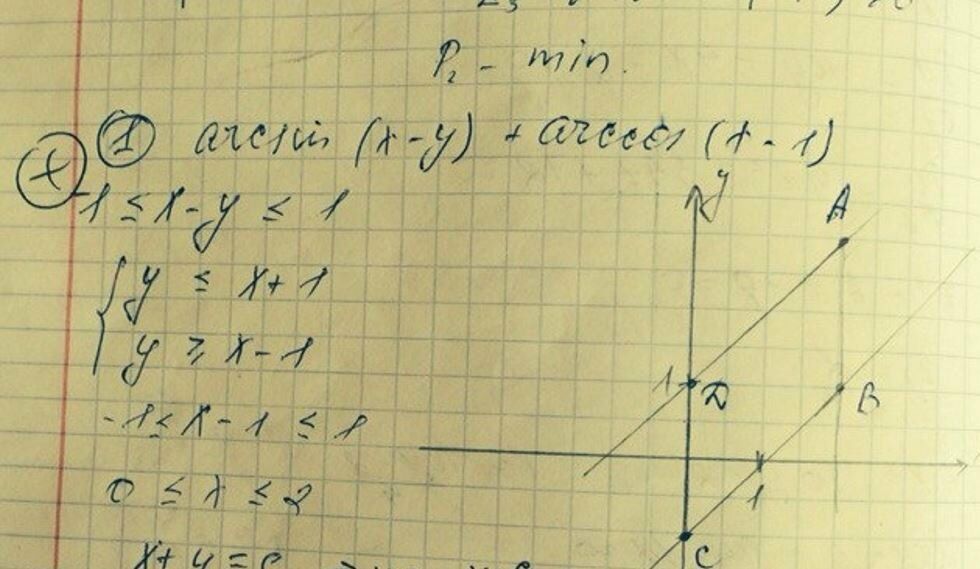 P₂ - min.
(+) (1) arcsin (x-y) + arccos (x-1)
-1 ≤ x-y ≤ 1
{ y ≤ x+1
y ≥ x-1
-1 ≤ x-1 ≤ 1
0 ≤ x ≤ 2
y
A
1
D
B
1
C